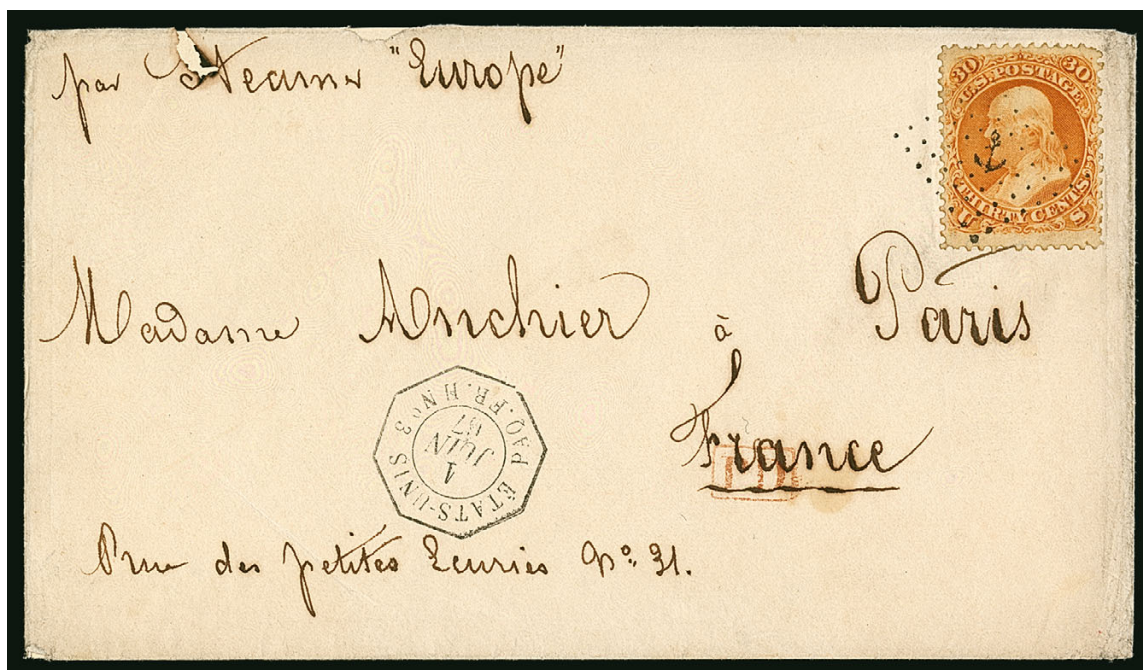 par Steamer "Europe"
30 U.S. POSTAGE 30
THIRTY CENTS
U S
Madame Anchier à Paris
France
PD
ÉTATS-UNIS PAQ. FR. H Nº 3
1
JUIN
67
rue des petites Ecuries Nº 31.